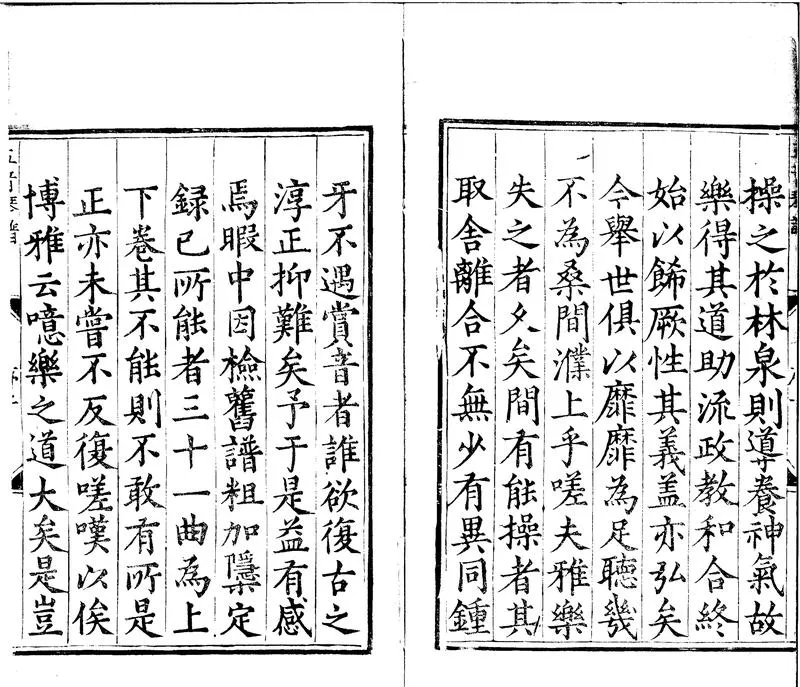 操之於林泉則導養神氣故
樂得其道助流政教和合終
始以餙厥性其義盖亦弘矣
今舉世俱以靡靡為足聽幾
不為桑間濮上乎嗟夫雅樂
失之者久矣間有能操者其
取舎離合不無少有異同鍾
牙不遇賞音者誰欲復古之
淳正抑難矣予于是益有感
焉暇中因檢舊譜粗加隱定
録已所能者三十一曲為上
下卷其不能則不敢有所是
正亦未嘗不反復嗟嘆以俟
博雅云噫樂之道大矣是豈
五音琴譜